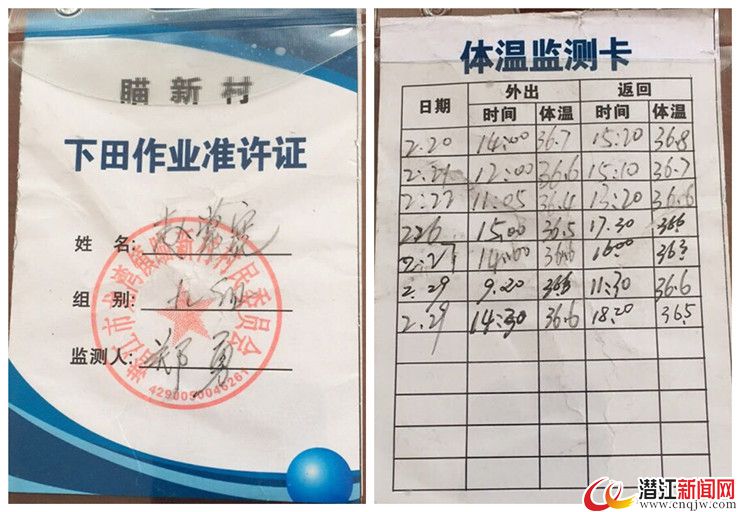 瞄新村
下田作业准许证
姓 名:
组 别: 九组
监测人: 郑勇
4290050046261
体温监测卡
日期 外出 返回
时间 体温 时间 体温
2.20 14:00 36.7 15:20 36.8
2.21 12:00 36.6 15:10 36.7
2:22 11:05 36.4 13:20 36.6
2.26 15.00 36.5 17.30 36.6
2:27 14:00 36.6 16:00 36.3
2:29 9.20 36.5 11:30 36.6
2.29 14:30 36.6 18:20 36.5
潜江新闻网
www.cnqjw.com